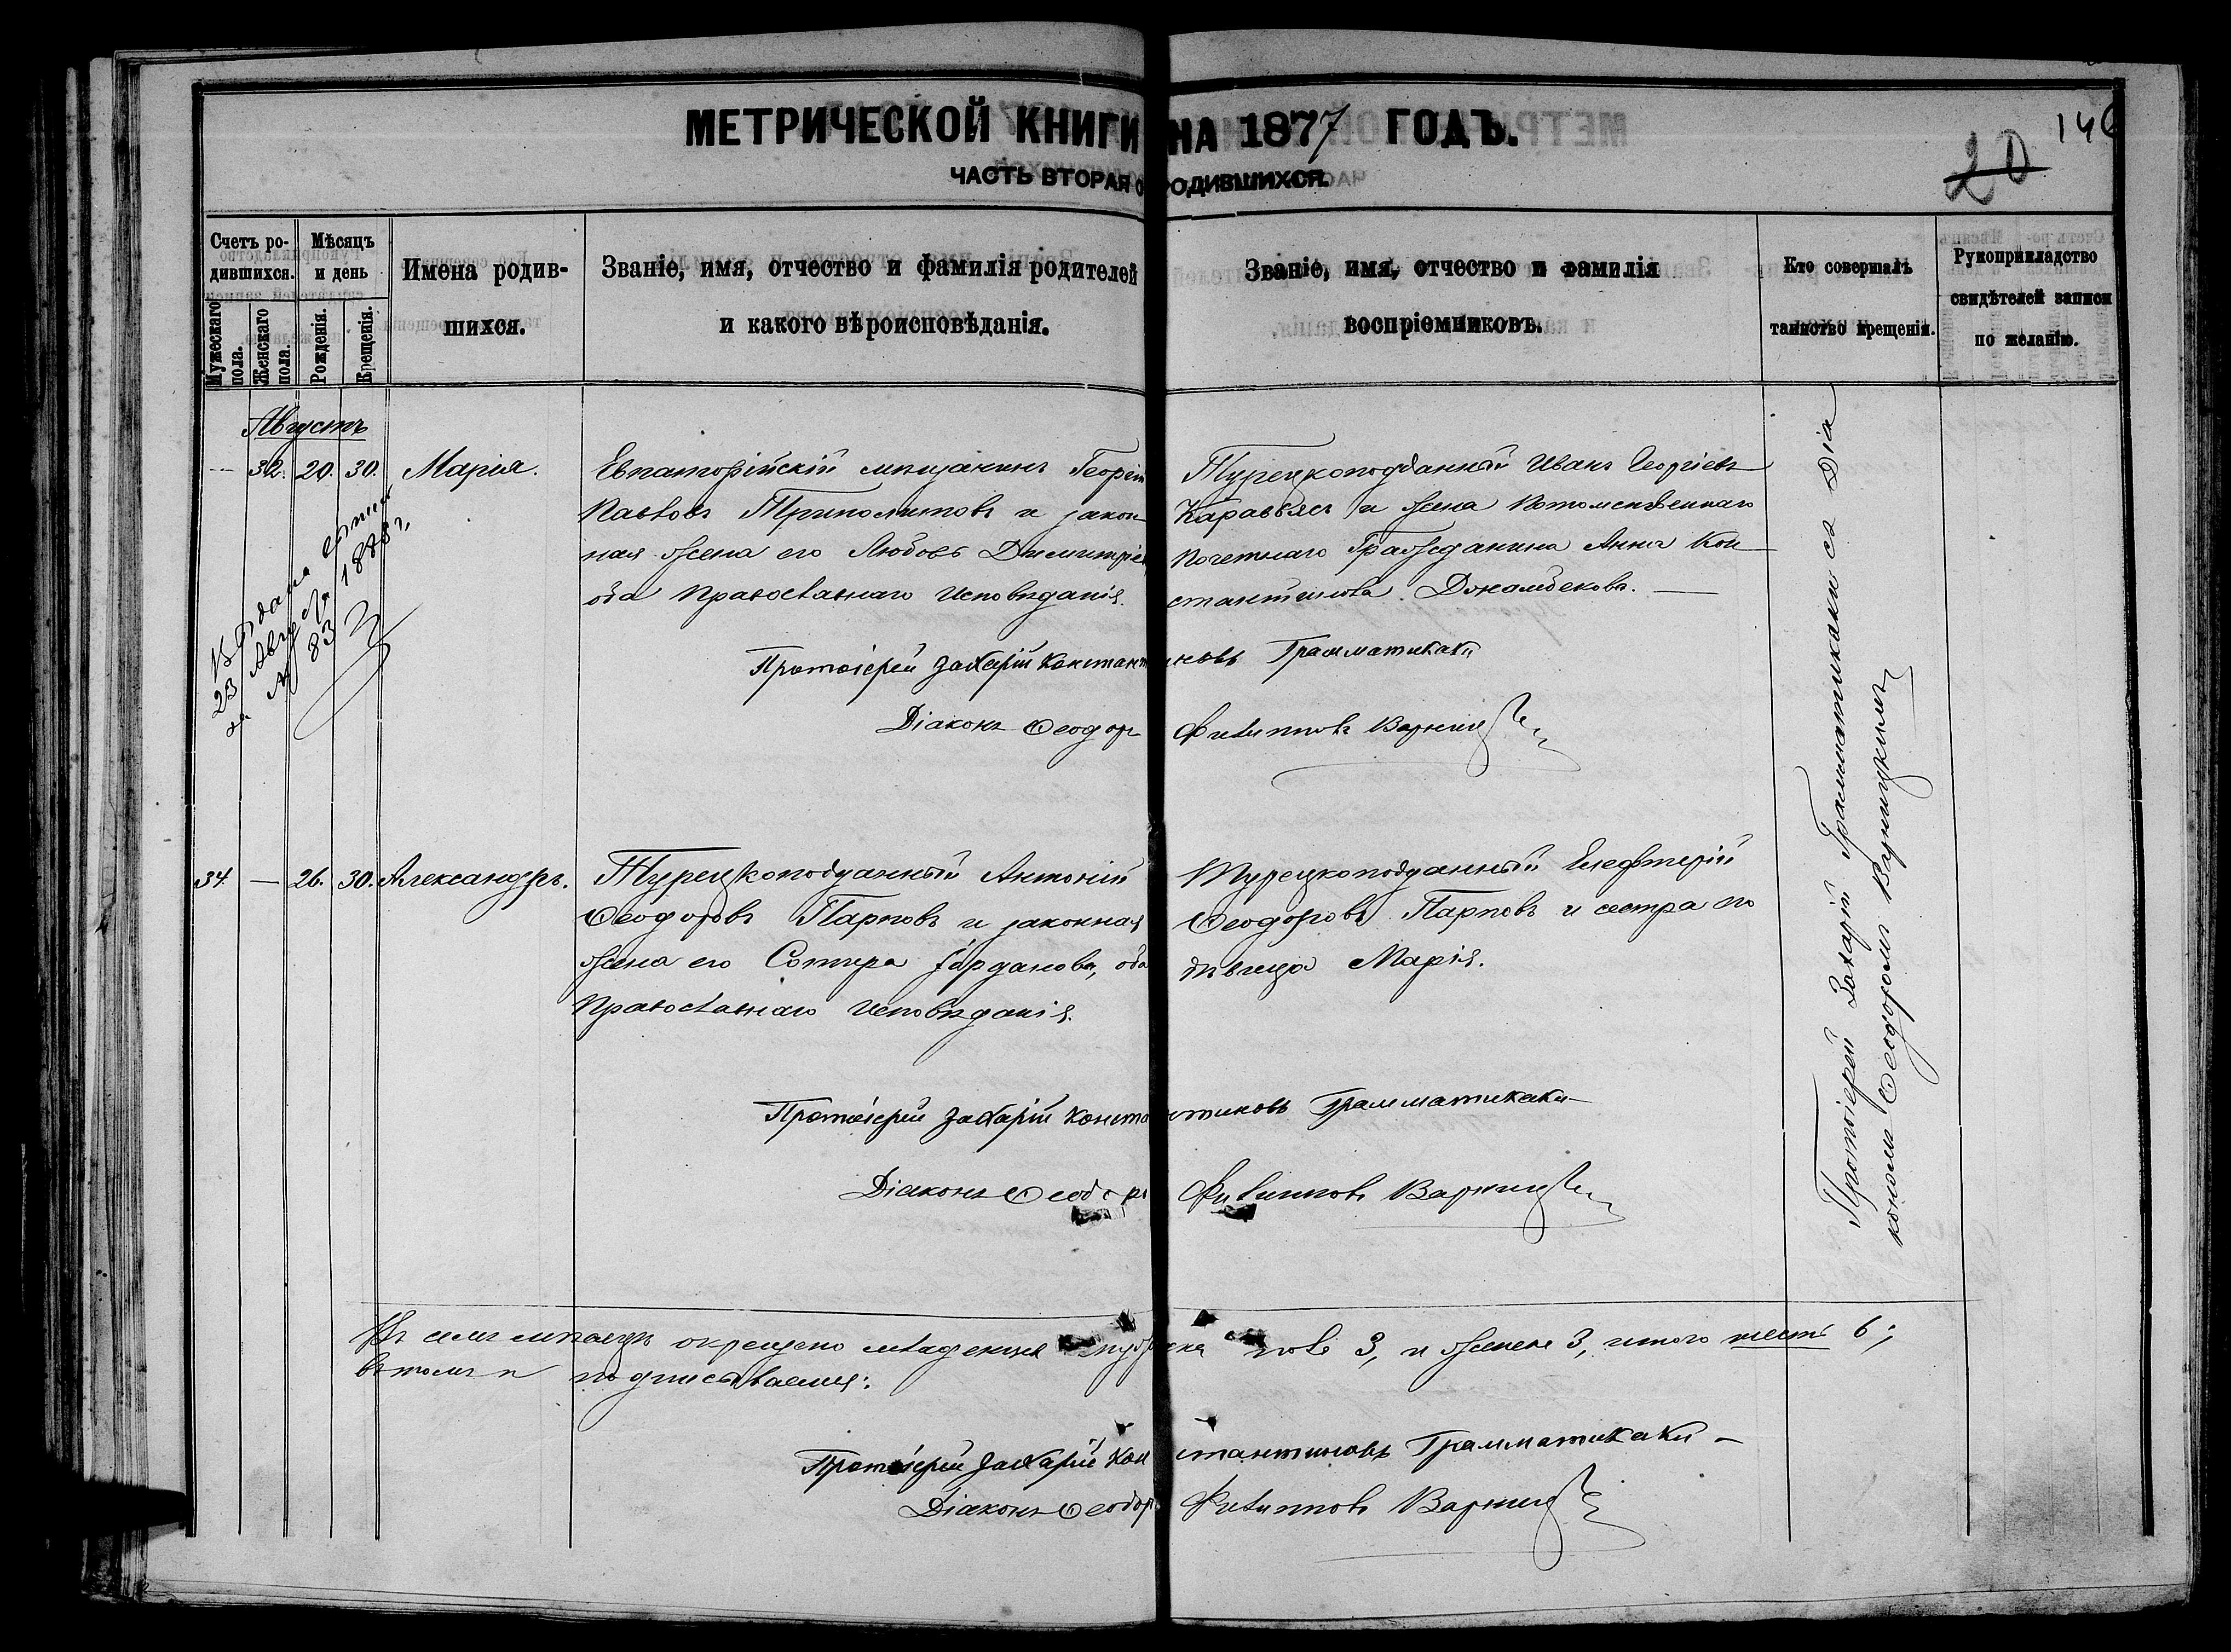 МЕТРИЧЕСКОЙ КНИГИ НА 1877 ГОДЪ.
ЧАСТЬ ВТОРАЯ О РОДИВШИХСЯ.
20
146
Счетъ ро-
дившихся.
Мужескаго пола.
Женскаго пола.
Мѣсяцъ
и день
Рожденія.
Крещенія.
Имена родив-
шихся.
Званіе, имя, отчество и фамилія родителей
и какого вѣроисповѣданія.
Званіе, имя, отчество и фамилія
воспріемниковъ.
Кто совершалъ
таинство крещенія.
Рукоприкладство
свидѣтелей записи
по желанію.
Августъ
— 32. 20. 30. Марія.
Евпаторійскій мѣщанинъ Георгій
Павловъ Триполитовъ и закон-
ная жена его Любовь Димитріева
оба Православнаго Исповѣданія.
Турецкоподданный Иванъ Георгіевъ
Каравьясъ и жена Потомственнаго
Почетнаго Гражданина Анна Кон-
стантинова Джамбековъ. —
23 Августа 1878 г.
за № 83
Протоіерей Захарій Константиновъ Грамматикаки
Діаконъ Ѳеодоръ Филипповъ Варницкій
34. — 26. 30. Александръ.
Турецкоподданный Антоній
Ѳеодоровъ Парповъ и законная
жена его Сотира Іорданова, оба
Православнаго Исповѣданія.
Турецкоподданный Елефтерій
Ѳеодоровъ Парповъ и сестра его
дѣвица Марія.
Протоіерей Захарій Константиновъ Грамматикаки —
Діаконъ Ѳеодоръ Филипповъ Варницкій
Протоіерей Захарій Грамматикаки со Діа
кономъ Ѳеодоромъ Варницкимъ
Въ семъ мѣсяцѣ окрещено младенцевъ мужеска пола 3, и женска 3, итого шесть 6;
въ томъ и подписываемся:
Протоіерей Захарій Константиновъ Грамматикаки —
Діаконъ Ѳеодоръ Филипповъ Варницкій